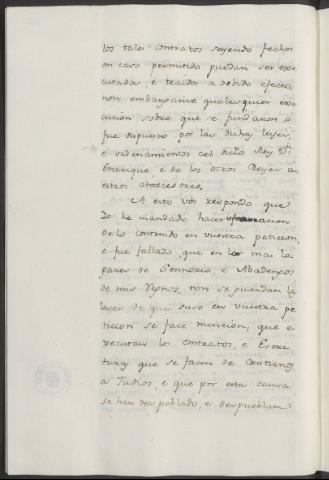 los tales contratos seyendo fechos
en caso permitido puedan ser exe
cutados, e traidos a debido efecto,
non embargante qualesquier exe
cucion sobre que se fundaron o
fue dispuesto por las dichas leyes,
e ordenamientos del dicho Rey Dn.
Enrrique, e de los otros Reyes an
estros antecesores.
A esto vos respondo que
Yo he mandado hacer informacion
de lo contenido en vuestra peticion,
e fue fallado, que en los mas lu
gares de Sennorio, e Abadengos
de mis regnos, non se guardan las
leyes de que suso en vuestra pe
ticion se face mencion, que e
xecutan los contratos, e Escri
turas que se facen de Cristianos
a Judios, e que por esta causa
se han despoblado, e despueblan